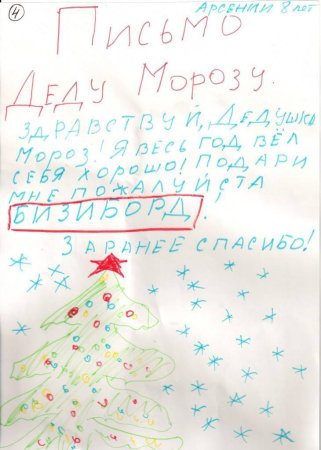 4
АРСЕНИЙ 8 лет
ПИСЬМО
ДЕДУ МОРОЗУ.
ЗДРАВСТВУЙ, ДЕДУШКА
МОРОЗ! Я ВЕСЬ ГОД ВЁЛ
СЕБЯ ХОРОШО! ПОДАРИ
МНЕ ПОЖАЛУЙСТА
БИЗИБОРД!
ЗАРАНЕЕ СПАСИБО!